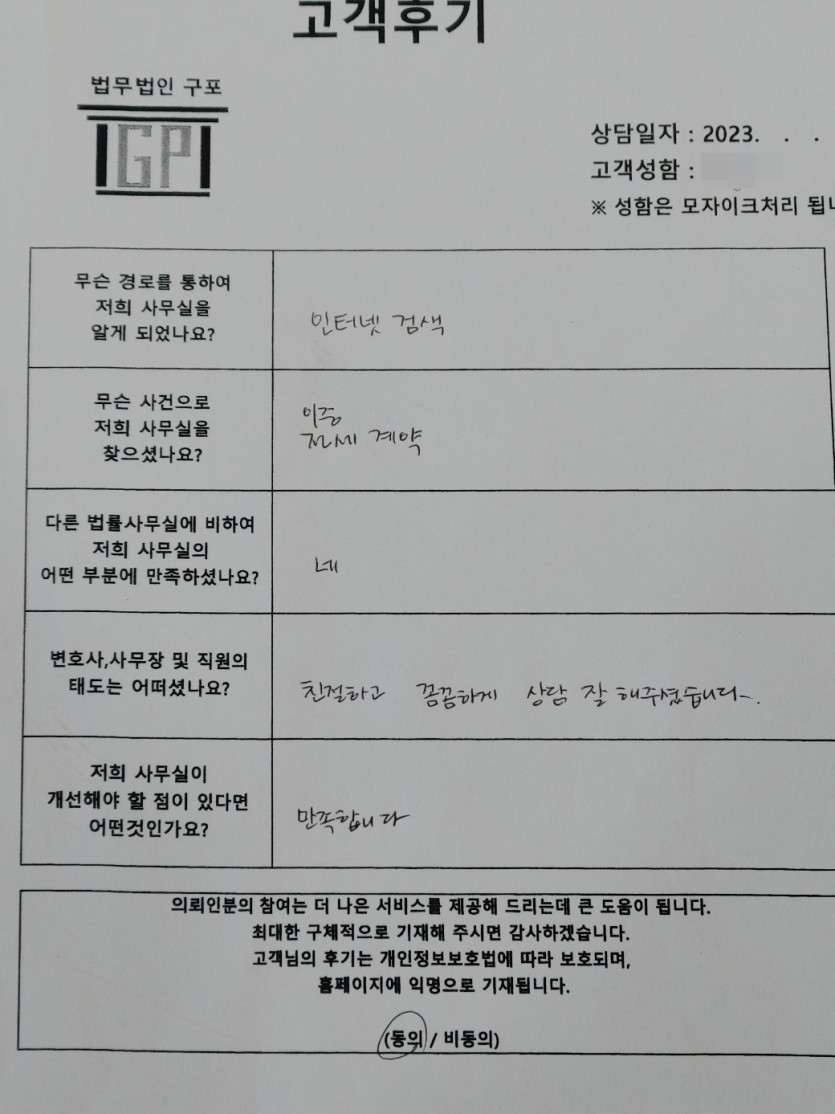 고객후기
법무법인 구포
GP
상담일자 : 2023. . .
고객성함 :
※ 성함은 모자이크처리 됩니
무슨 경로를 통하여
저희 사무실을
알게 되었나요?
인터넷 검색
무슨 사건으로
저희 사무실을
찾으셨나요?
이중
전세 계약
다른 법률사무실에 비하여
저희 사무실의
어떤 부분에 만족하셨나요?
네
변호사,사무장 및 직원의
태도는 어떠셨나요?
친절하고 꼼꼼하게 상담 잘 해주셨습니다~.
저희 사무실이
개선해야 할 점이 있다면
어떤것인가요?
만족합니다
의뢰인분의 참여는 더 나은 서비스를 제공해 드리는데 큰 도움이 됩니다.
최대한 구체적으로 기재해 주시면 감사하겠습니다.
고객님의 후기는 개인정보보호법에 따라 보호되며,
홈페이지에 익명으로 기재됩니다.
(동의 / 비동의)